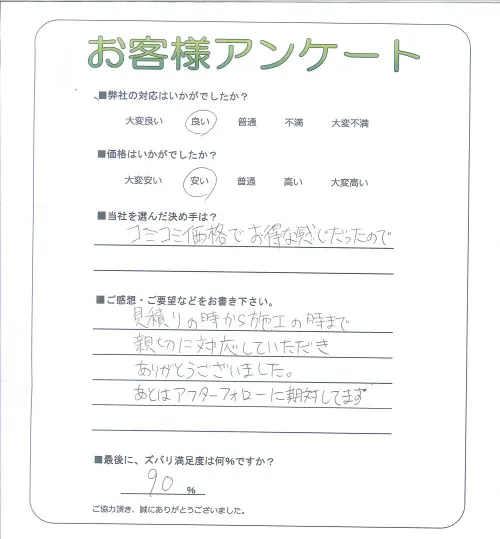 お客様アンケート
■弊社の対応はいかがでしたか？
大変良い 良い 普通 不満 大変不満
■価格はいかがでしたか？
大変安い 安い 普通 高い 大変高い
■当社を選んだ決め手は？
コミコミ価格でお得な感じだったので
■ご感想・ご要望などをお書き下さい。
見積りの時から施工の時まで
親切に対応していただき
ありがとうございました。
あとはアフターフォローに期対してます
■最後に、ズバリ満足度は何%ですか？
90 %
ご協力頂き、誠にありがとうございました。